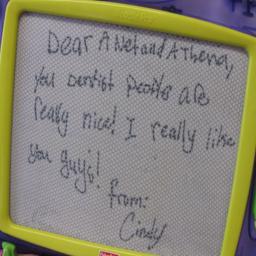 Dear A Net and Athena,
you Dentist People are
really nice! I really like
you guys!
From:
Cindy